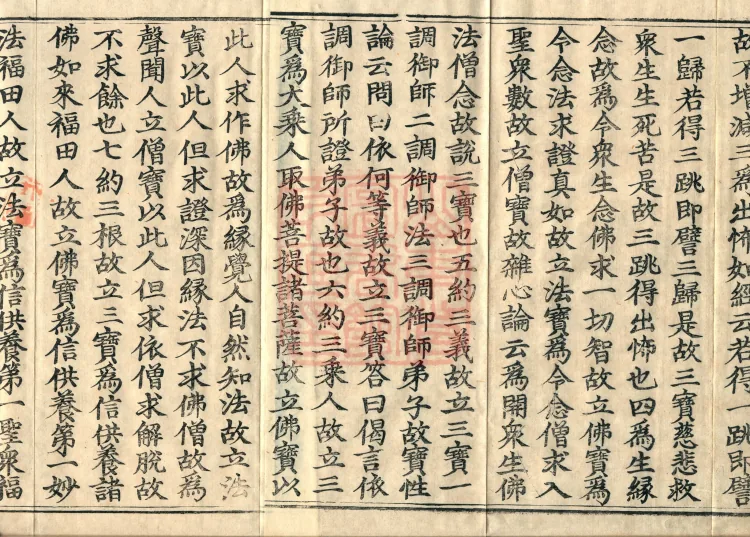 故不增減三為出怖如經云若得一跳即譬
一歸若得三跳即譬三歸是故三寶慈悲救
衆生生死苦是故三跳得出怖也四為生緣
念故爲令衆生念佛求一切智故立佛寶爲
令念法求證真如故立法寶爲令念僧求入
聖衆數故立僧寶故雜心論云爲開衆生佛
法僧念故說三寶也五約三義故立三寶一
調御師二調御師法三調御師弟子故寶性
論云問曰依何等義故立三寶答曰偈言依
調御師所證弟子故也六約三乘人故立三
寶爲大乘人取佛菩提諸菩薩故立佛寶以
此人求作佛故爲緣覺人自然知法故立法
寶以此人但求證深因緣法不求佛僧故爲
聲聞人立僧寶以此人但求依僧求解脫故
不求餘也七約三根故立三寶爲信供養諸
佛如來福田人故立佛寶爲信供養第一妙
法福田人故立法寶爲信供養第一聖衆福